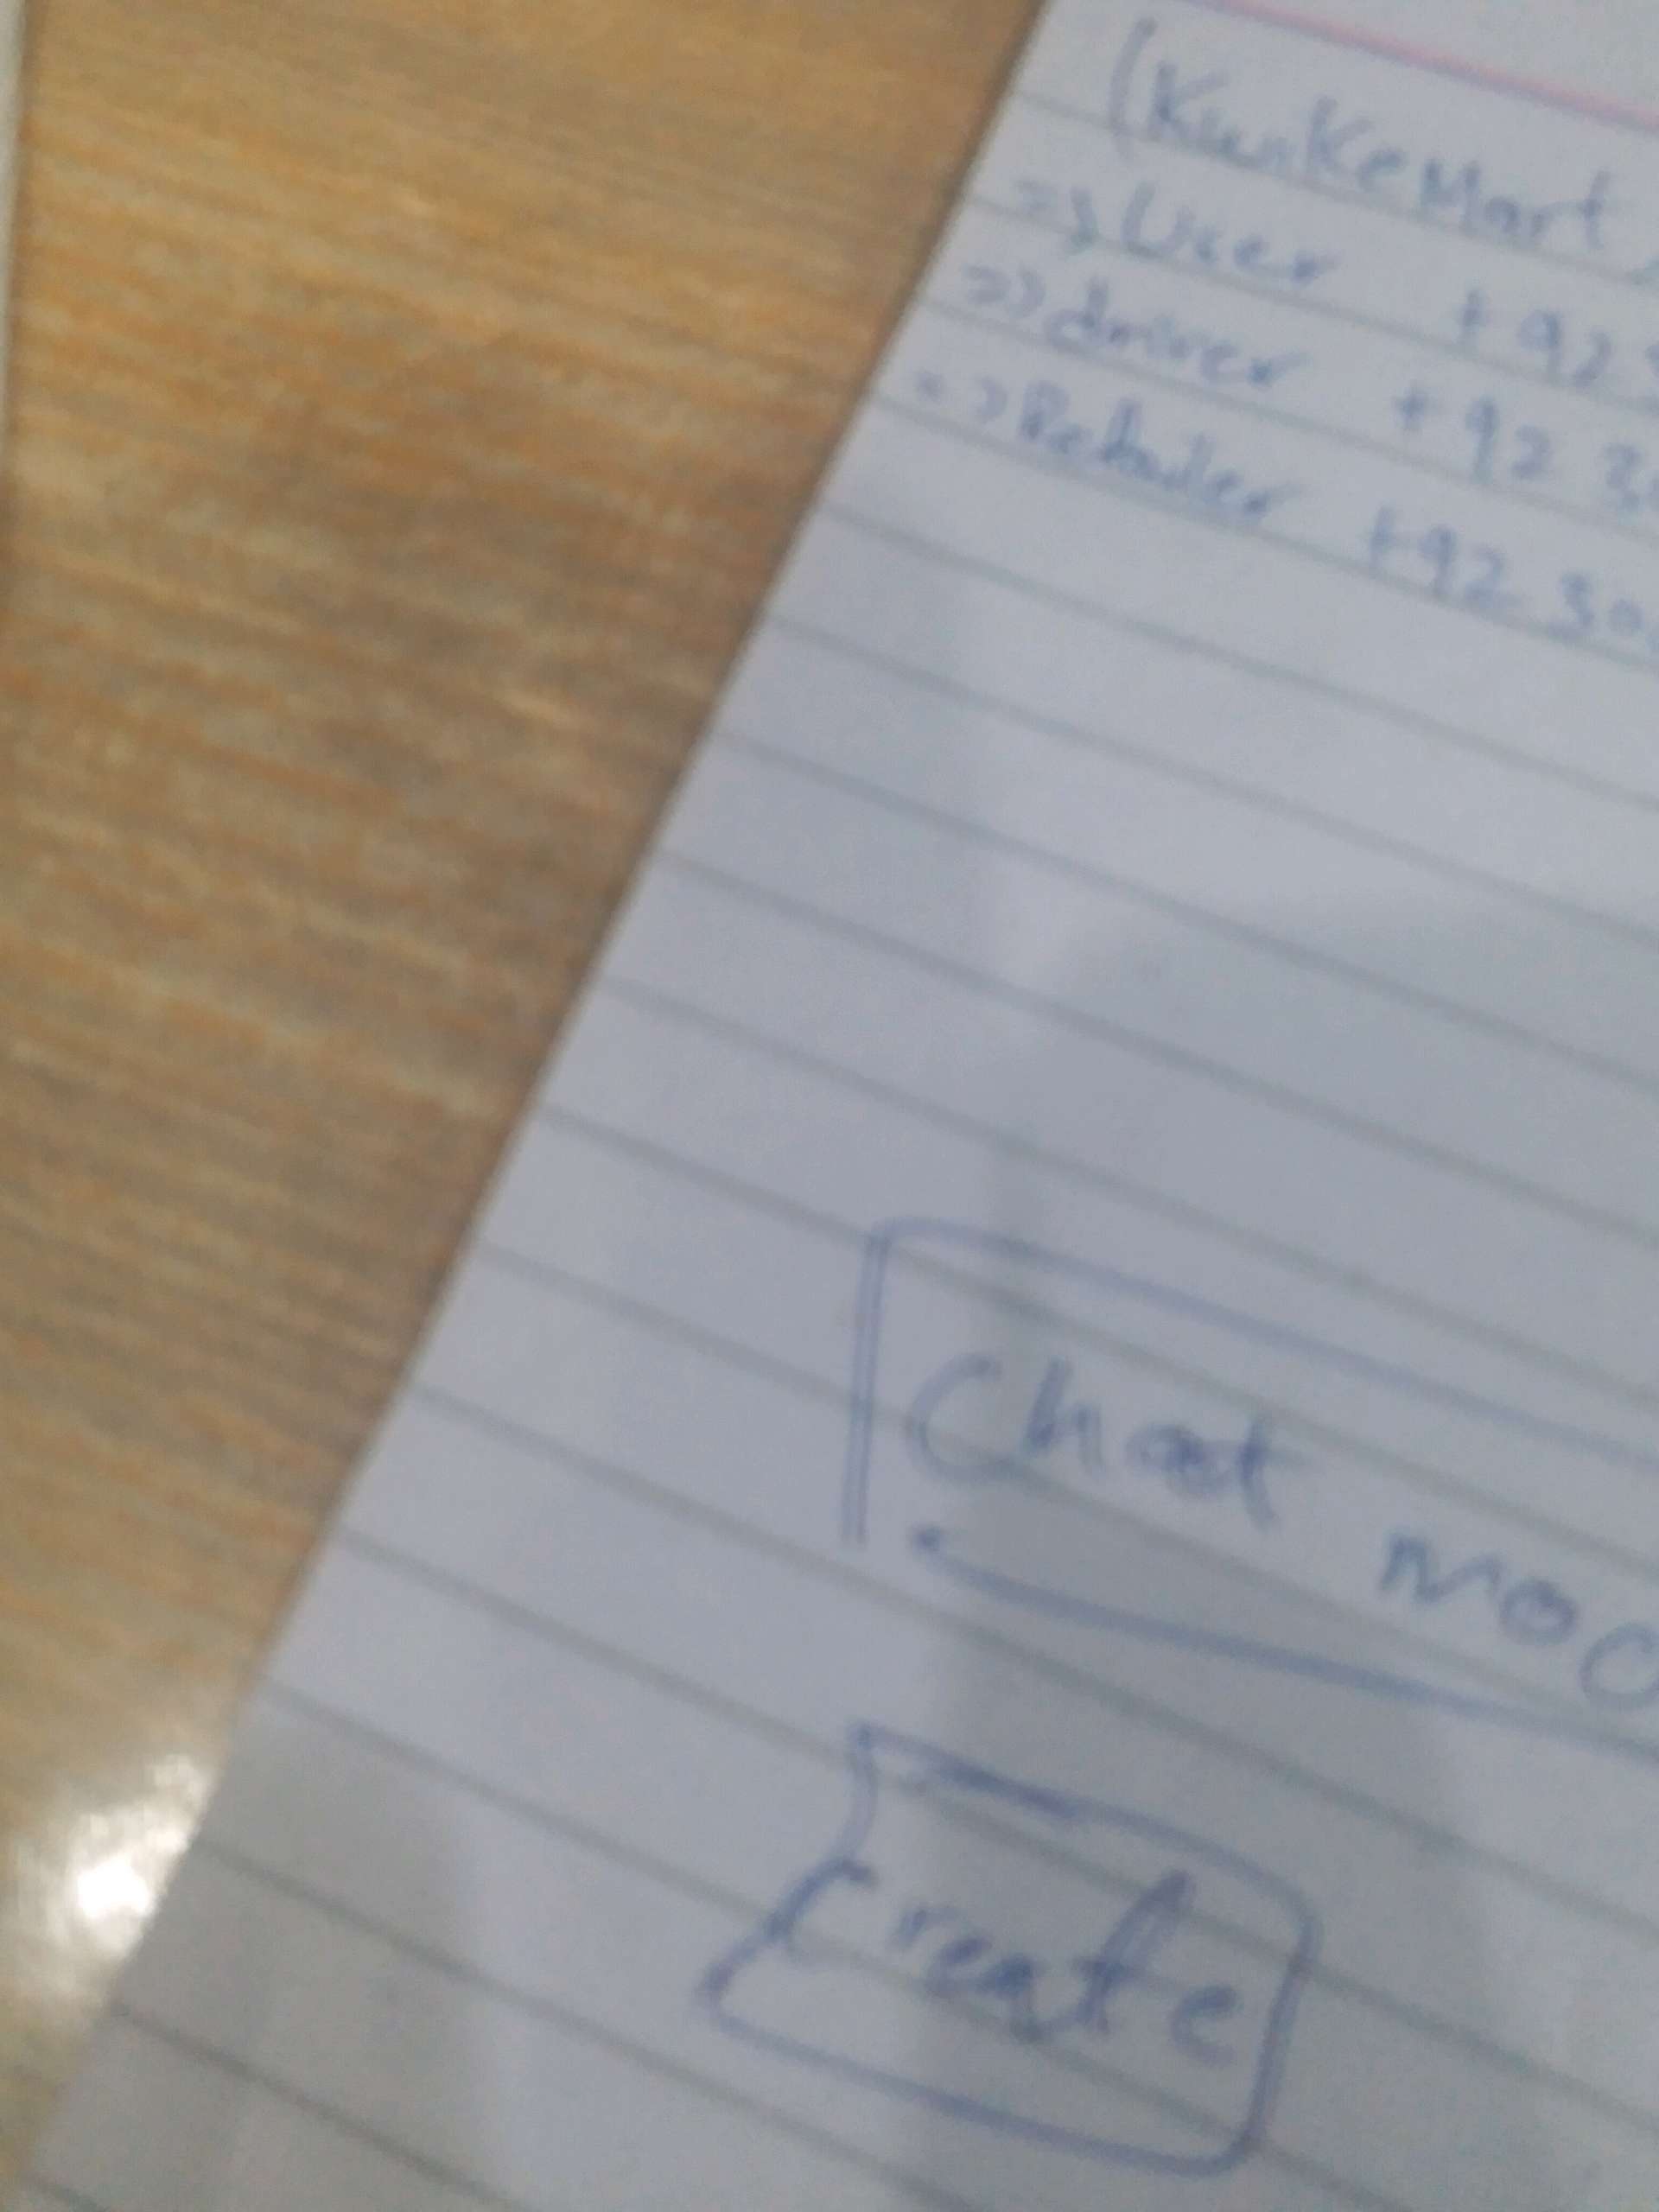 (KunKeMart)
=> User +92 3
=> driver +92 30
=> Retailer +92 30
Chat mod
Create